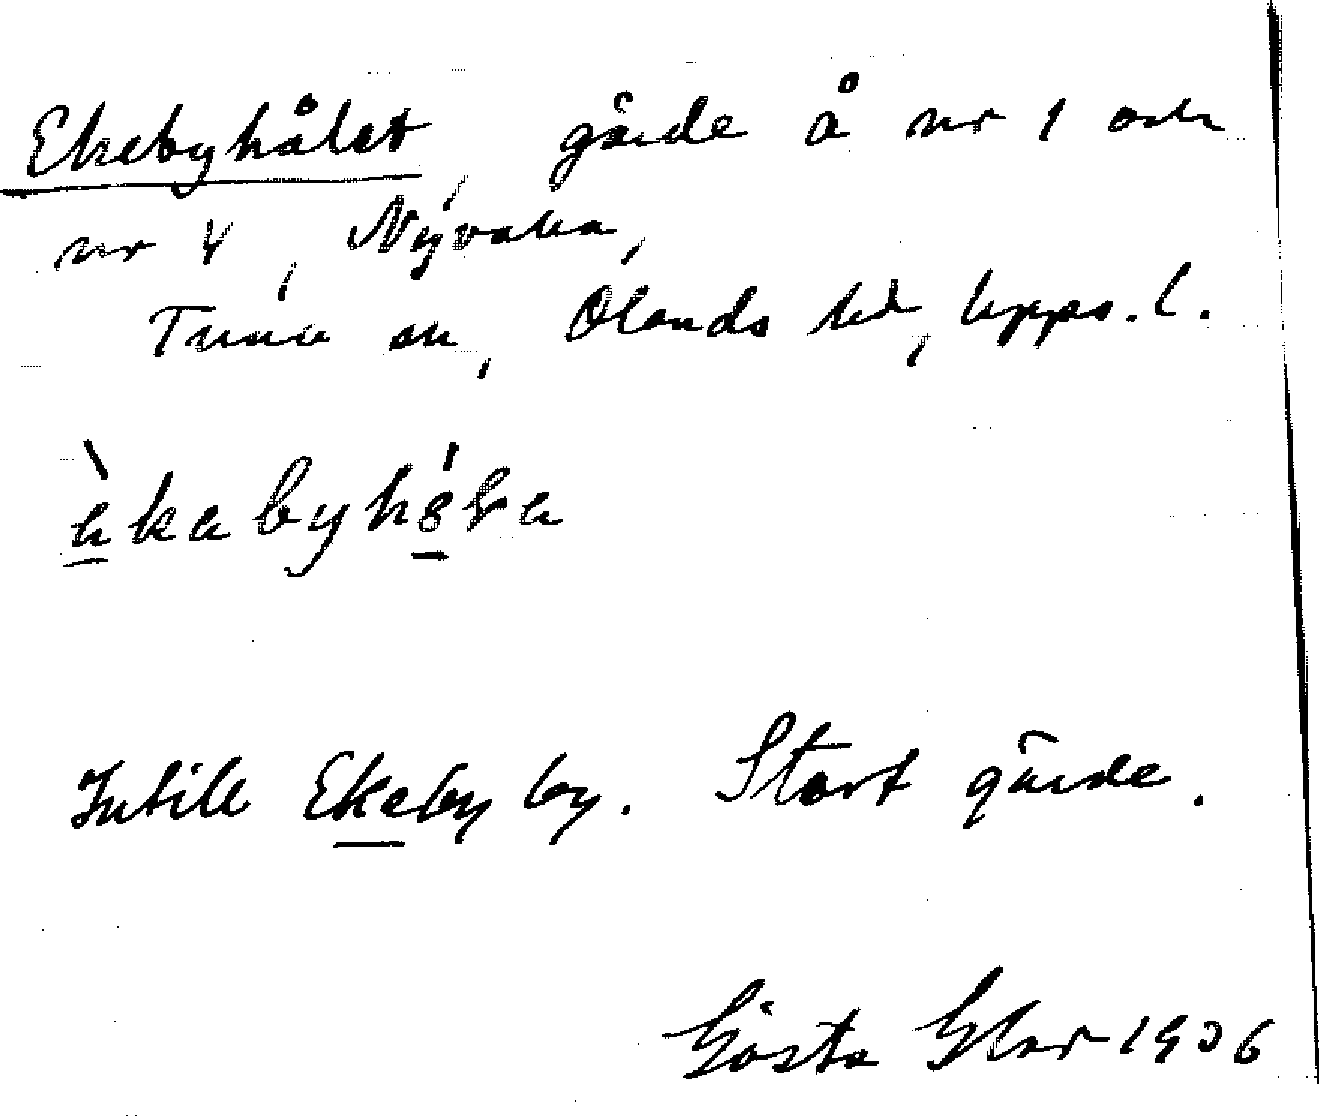 Ekebyhålet, gärde å nr 1 och
nr 4, Nyvalla,
Tuna sn, Olands hd, Upps. l.
Intill Ekeby by. Stort gärde.
Gösta 1936